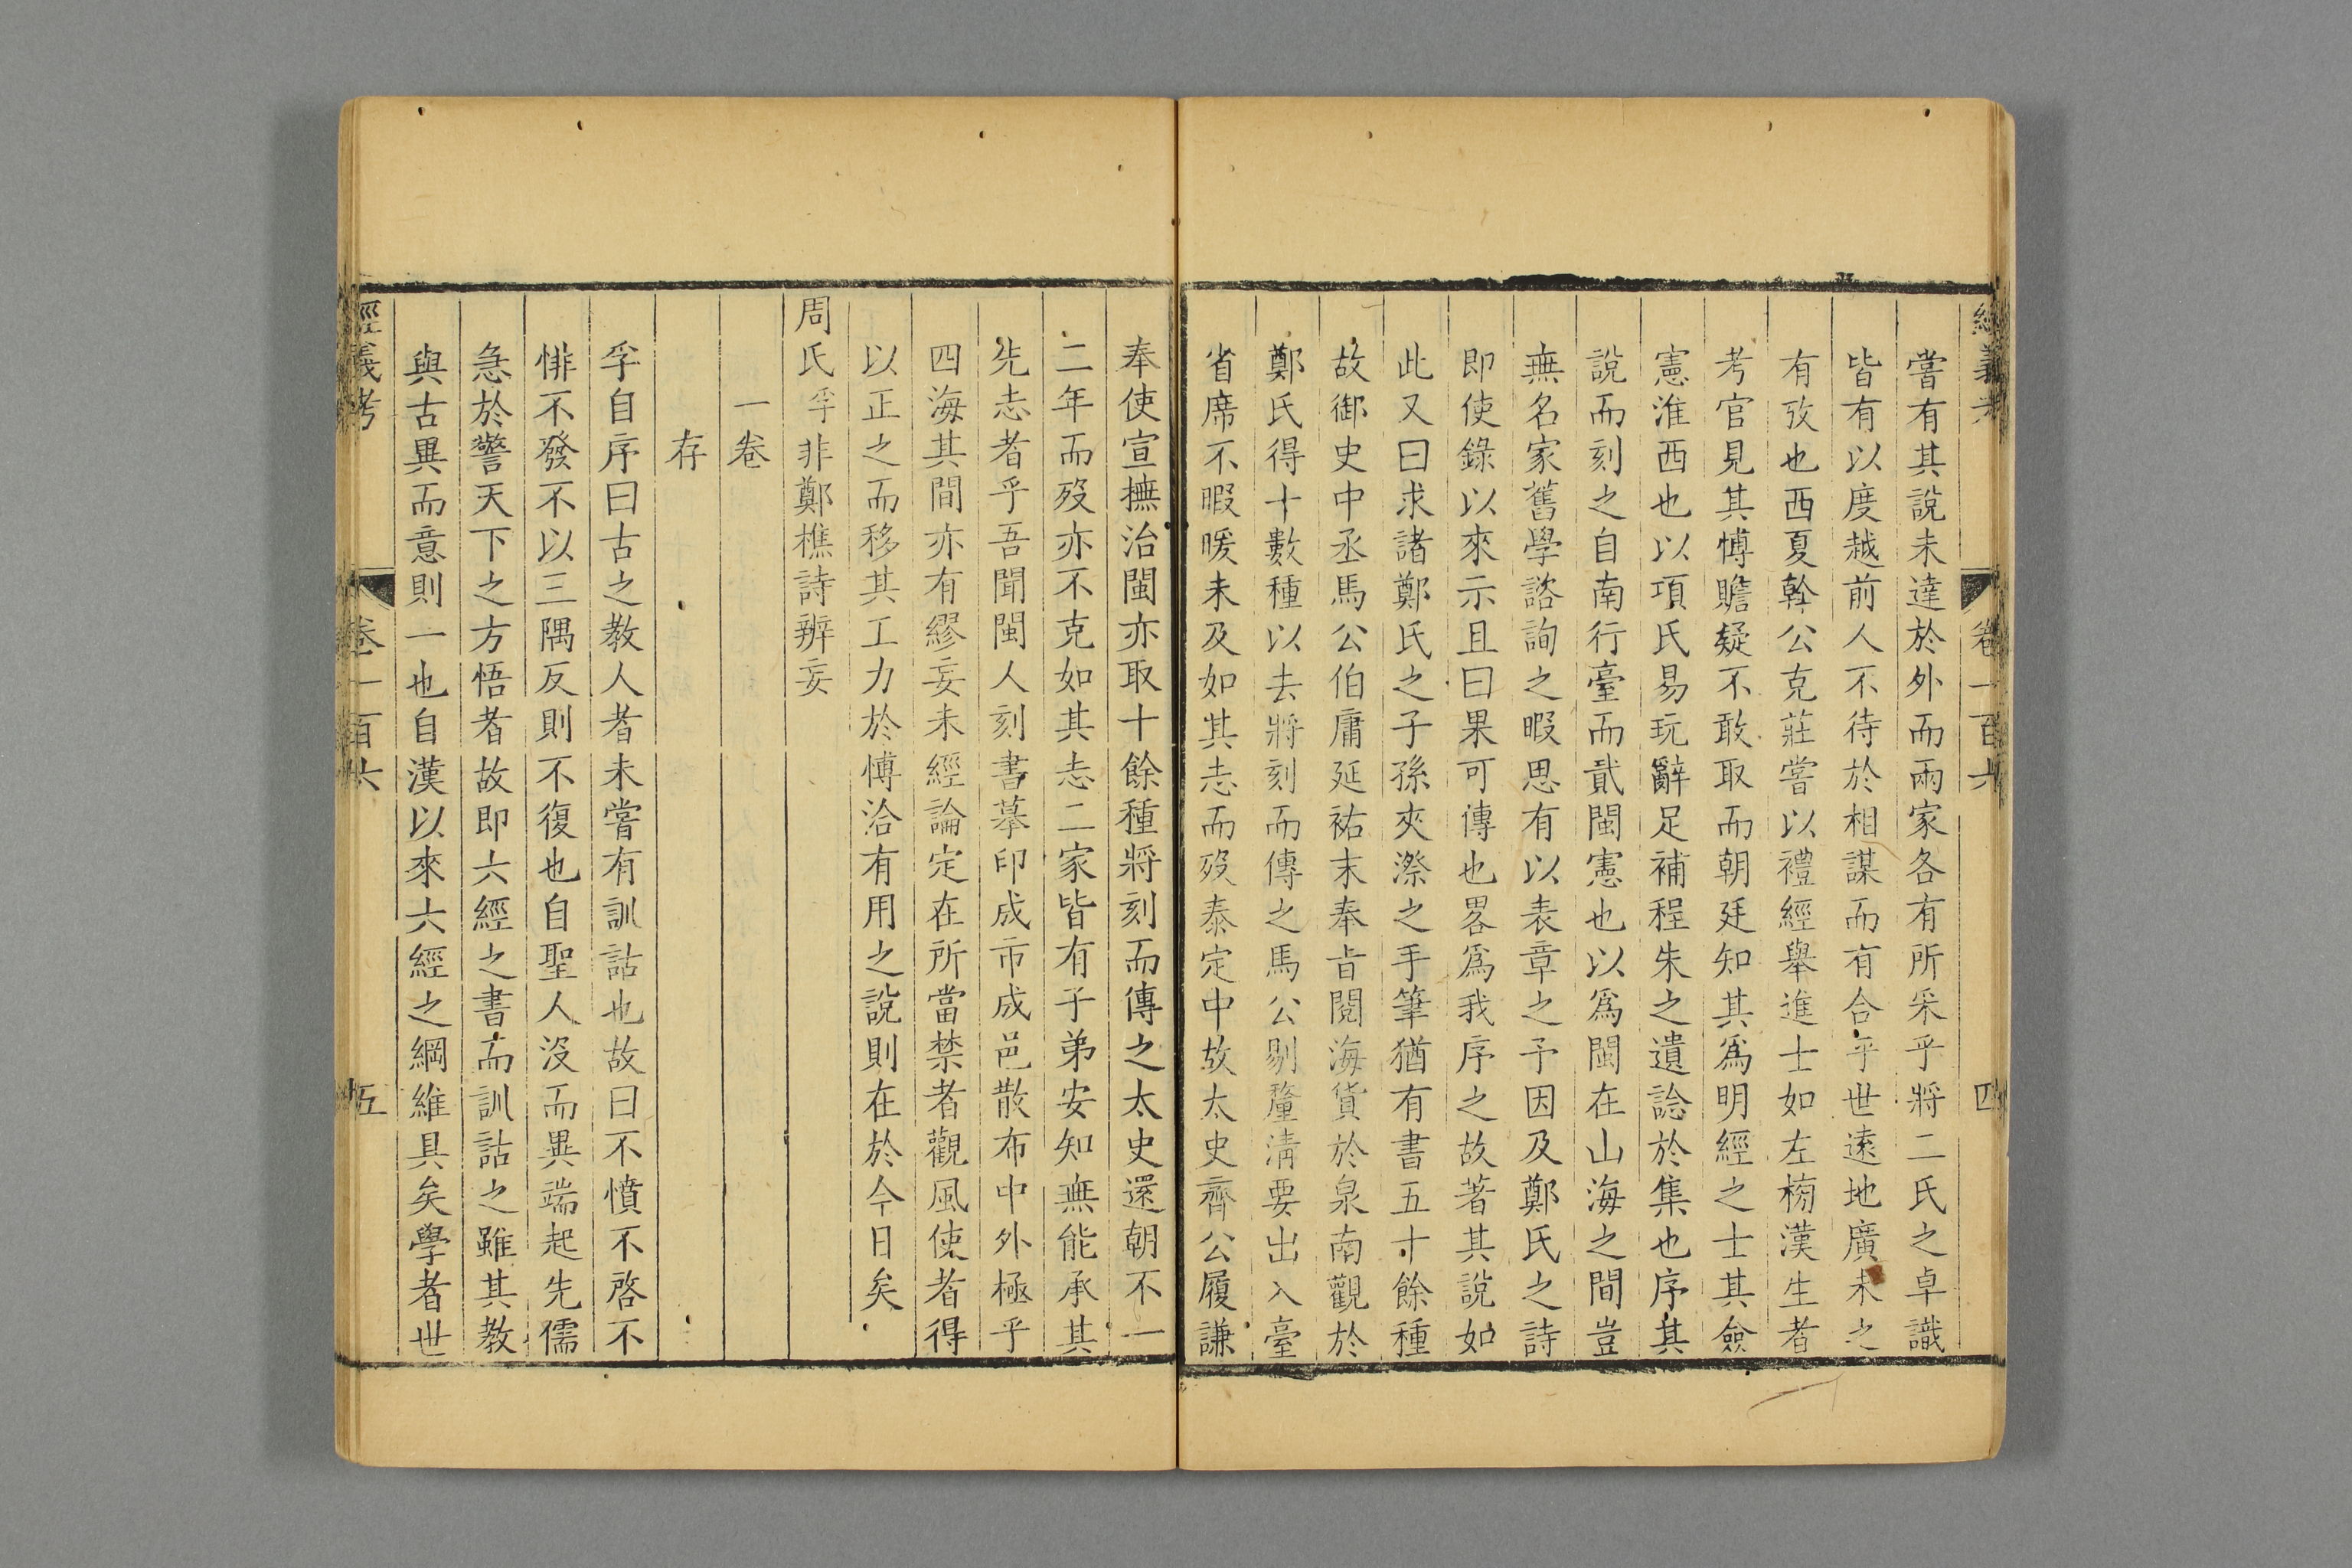 經義考 卷一百六 四
嘗有其說未達於外而兩家各有所采乎將二氏之卓識
皆有以度越前人不待於相謀而有合乎世遠地廣未之
有攷也西夏斡公克莊嘗以禮經舉進士如左榜漢生者
考官見其博贍疑不敢取而朝廷知其爲明經之士其僉
憲淮西也以項氏易玩辭足補程朱之遺諗於集也序其
說而刻之自南行臺而貳閩憲也以爲閩在山海之間豈
無名家舊學諮詢之暇思有以表章之予因及鄭氏之詩
即使錄以來示且曰果可傳也畧爲我序之故著其說如
此又曰求諸鄭氏之子孫夾漈之手筆猶有書五十餘種
故御史中丞馬公伯庸延祐末奉旨閱海貨於泉南觀於
鄭氏得十數種以去將刻而傳之馬公剔釐淸要出入臺
省席不暇暖未及如其志而歿泰定中故太史齊公履謙
奉使宣撫治閩亦取十餘種將刻而傳之太史還朝不一
二年而歿亦不克如其志二家皆有子弟安知無能承其
先志者乎吾聞閩人刻書摹印成市成邑散布中外極乎
四海其間亦有繆妄未經論定在所當禁者觀風使者得
以正之而移其工力於博洽有用之說則在於今日矣
周氏孚非鄭樵詩辨妄
一卷
存
孚自序曰古之教人者未嘗有訓詁也故曰不憤不啓不
悱不發不以三隅反則不復也自聖人沒而異端起先儒
急於警天下之方悟者故即六經之書而訓詁之雖其教
與古異而意則一也自漢以來六經之綱維具矣學者世
經義考 卷一百六 五